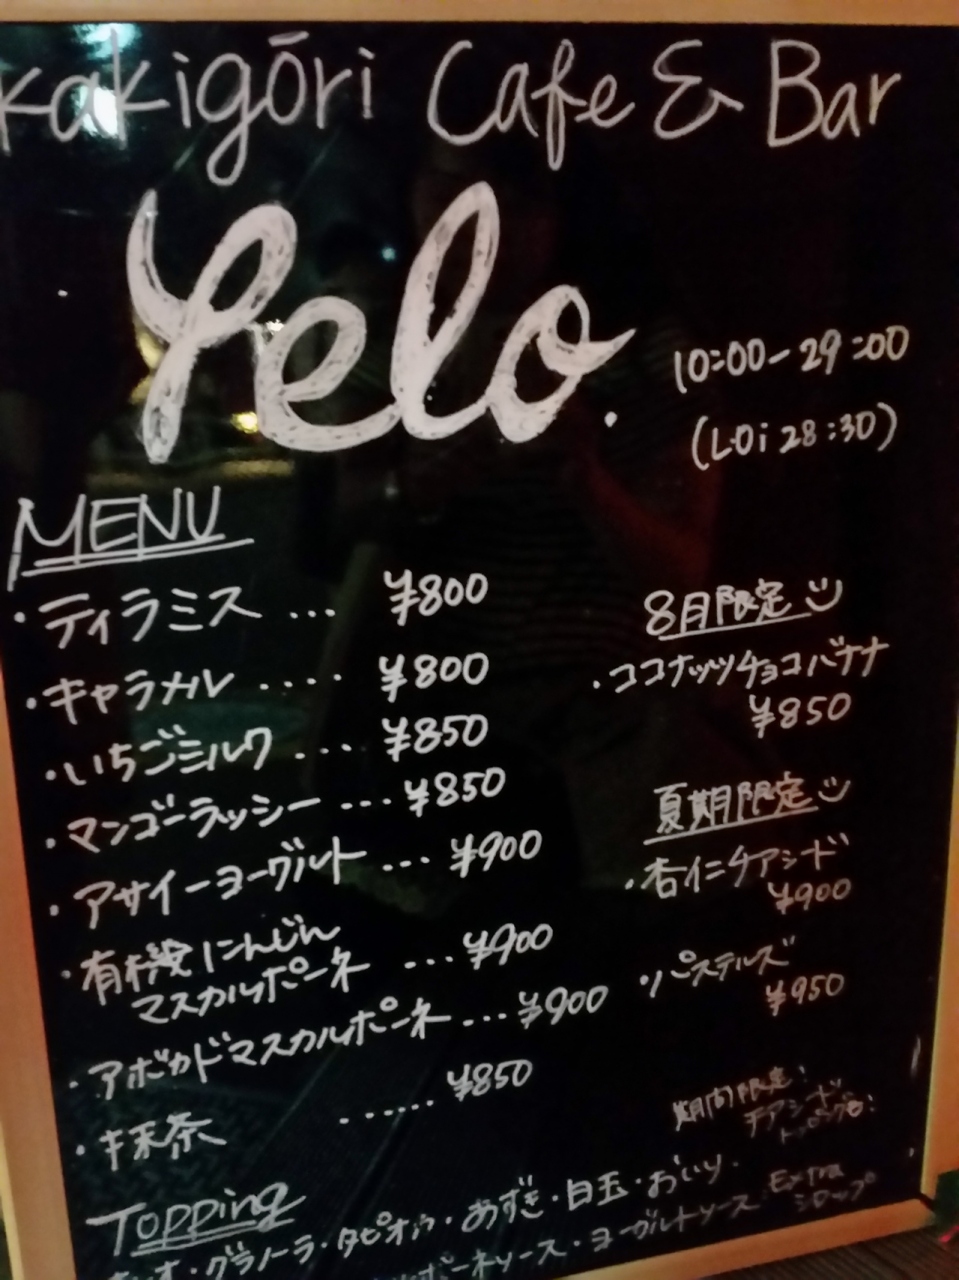 kakigōri Cafe & Bar
Yelo.
10:00-29:00
(L.O; 28:30)
MENU
・ティラミス ... ¥800
・キャラメル .... ¥800
・いちごミルク ... ¥850
・マンゴーラッシー ... ¥850
・アサイーヨーグルト ... ¥900
・有機にんじん
マスカルポーネ ... ¥900
・アボカドマスカルポーネ ... ¥900
・抹茶 ...... ¥850
8月限定
・ココナッツチョコバナナ
¥850
夏期限定
・杏仁チアシード
¥900
・パステルズ
¥950
期間限定!
チアシード
トッピングも!
Topping
・グラノーラ・タピオカ・あずき・白玉・おいり・
ポーネソース・ヨーグルトソース
Extra
シロップ